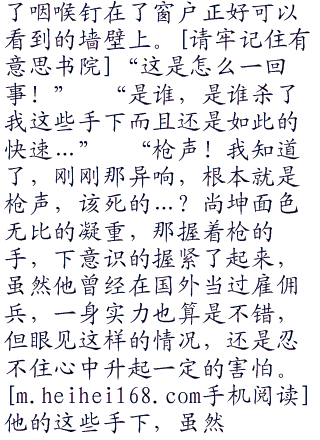 了咽喉钉在了窗户正好可以
看到的墙壁上。[请牢记住有
意思书院]“这是怎么一回
事！” “是谁，是谁杀了
我这些手下而且还是如此的
快速…” “枪声！我知道
了，刚刚那异响，根本就是
枪声，该死的…？尚坤面色
无比的凝重，那握着枪的
手，下意识的握紧了起来，
虽然他曾经在国外当过雇佣
兵，一身实力也算是不错，
但眼见这样的情况，还是忍
不住心中升起一定的害怕。
[m.heihei168.com手机阅读]
他的这些手下，虽然